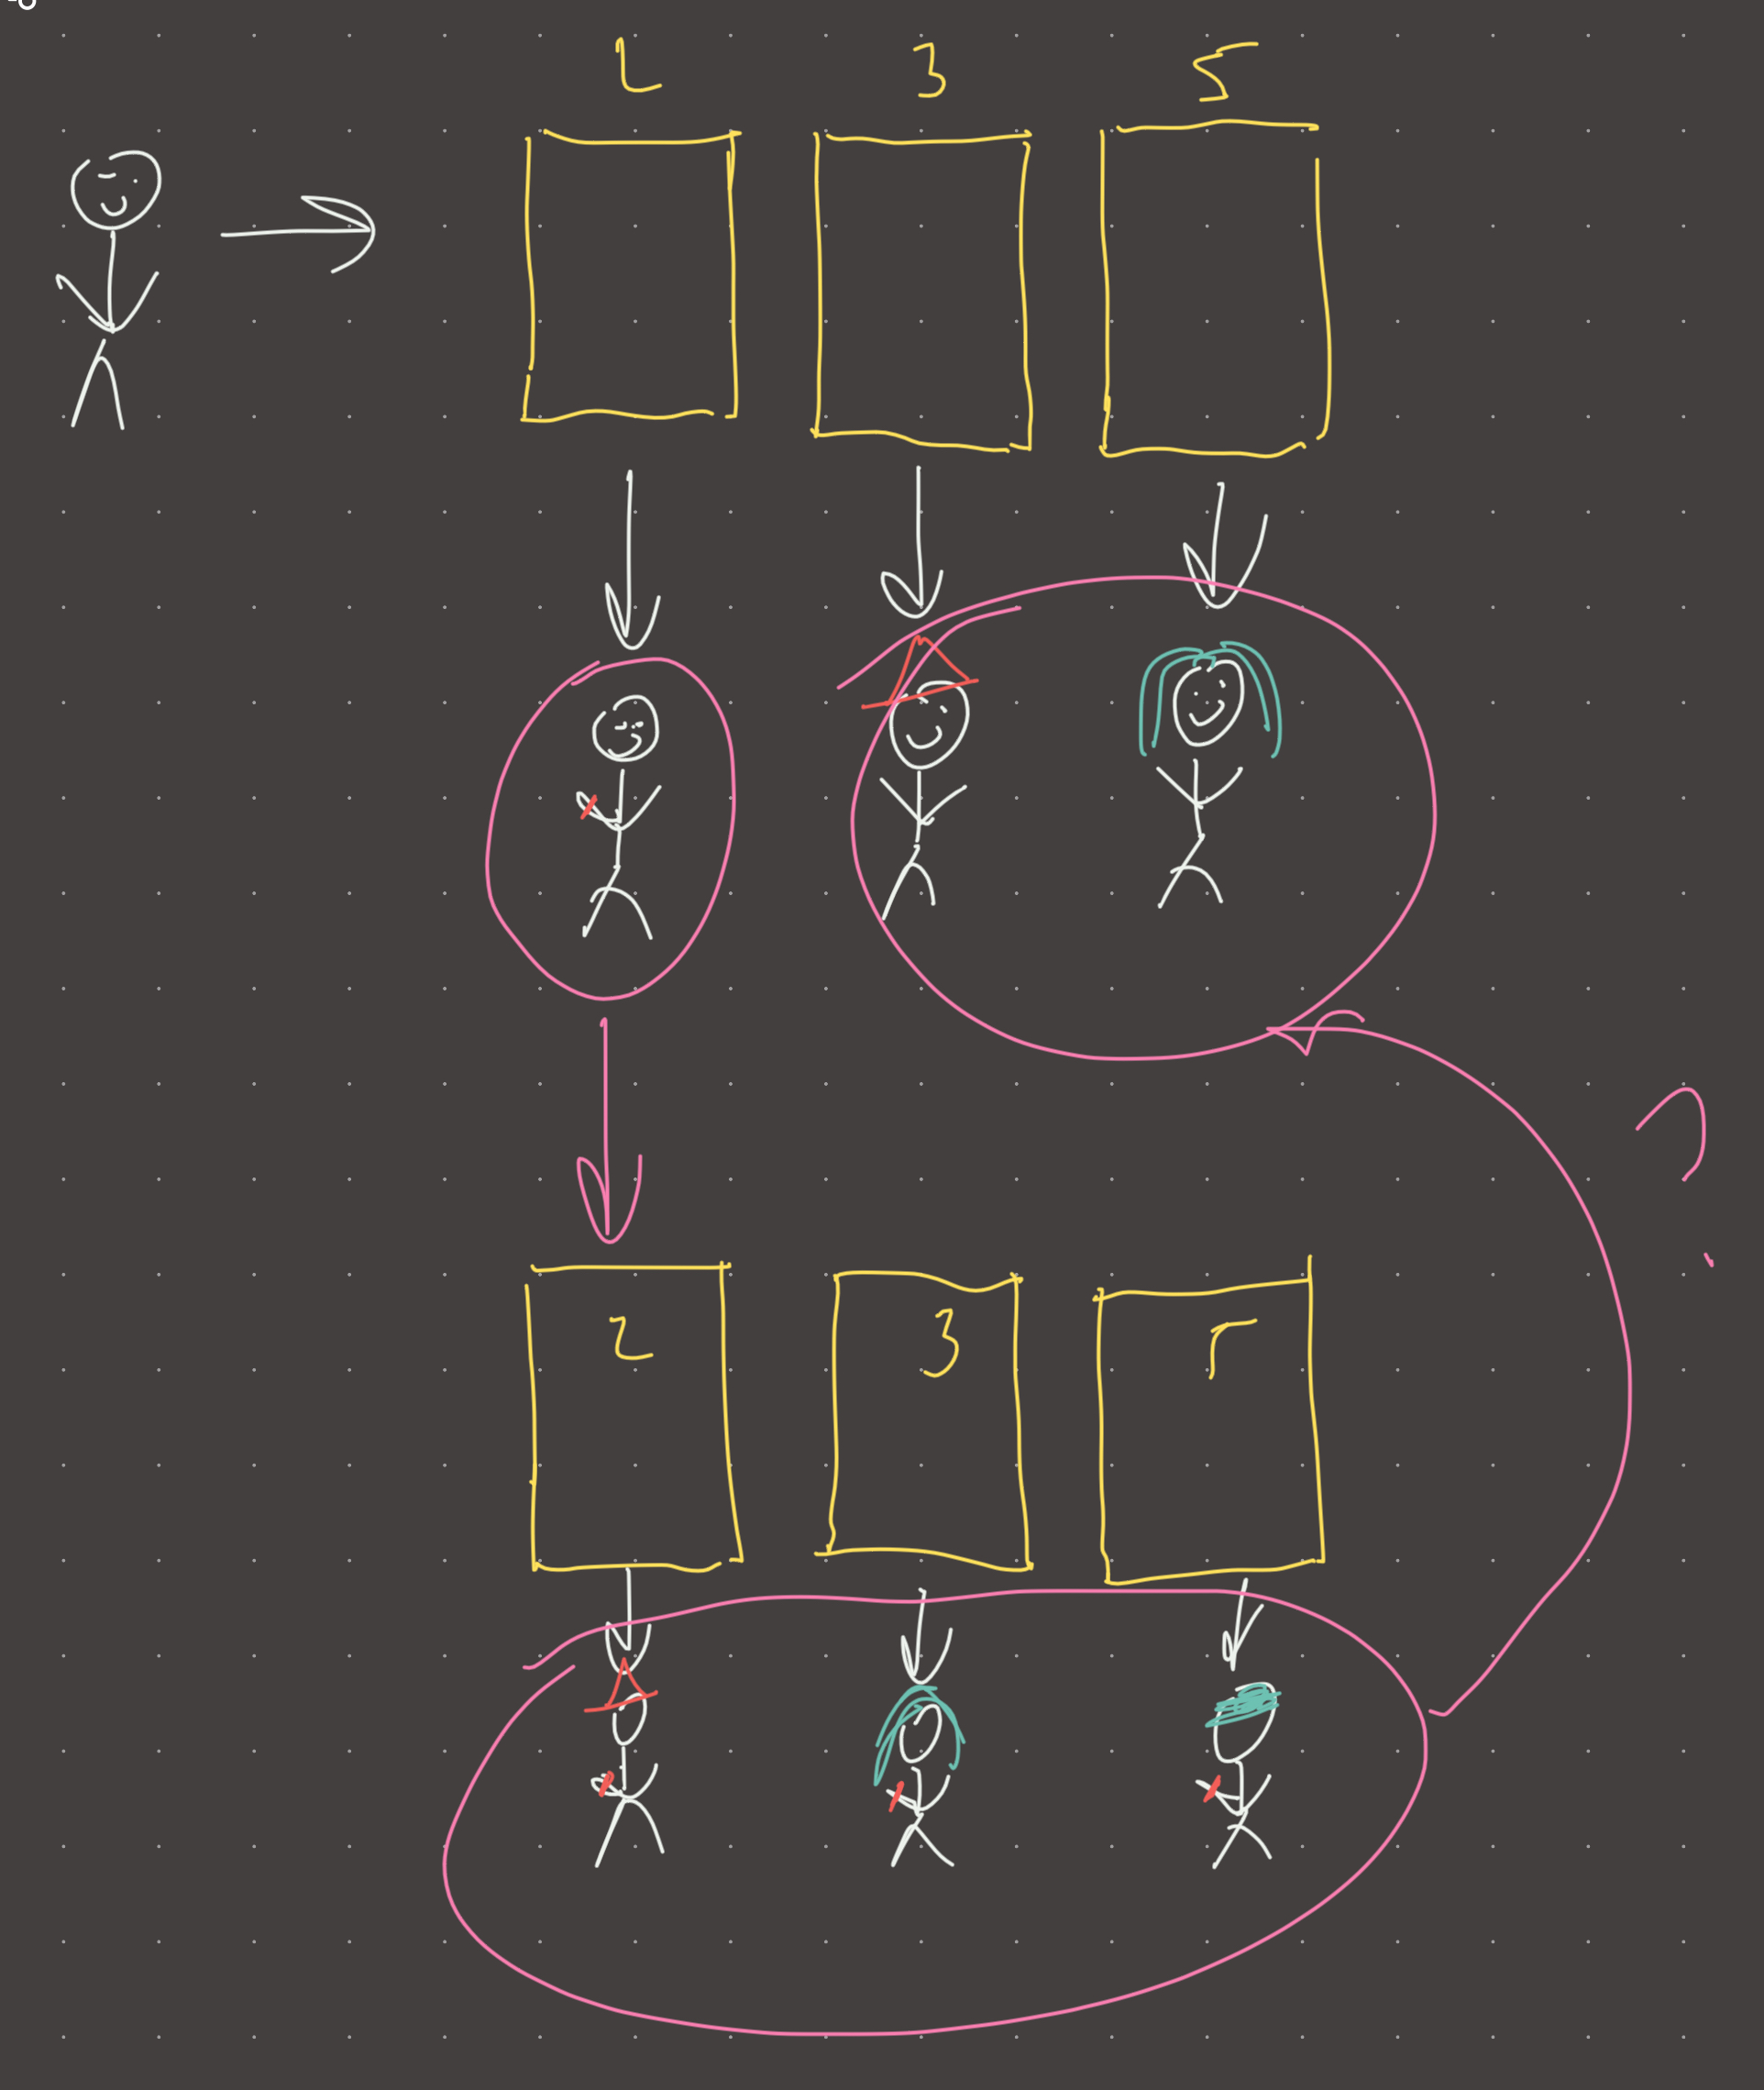 2 3 5
?
2 3